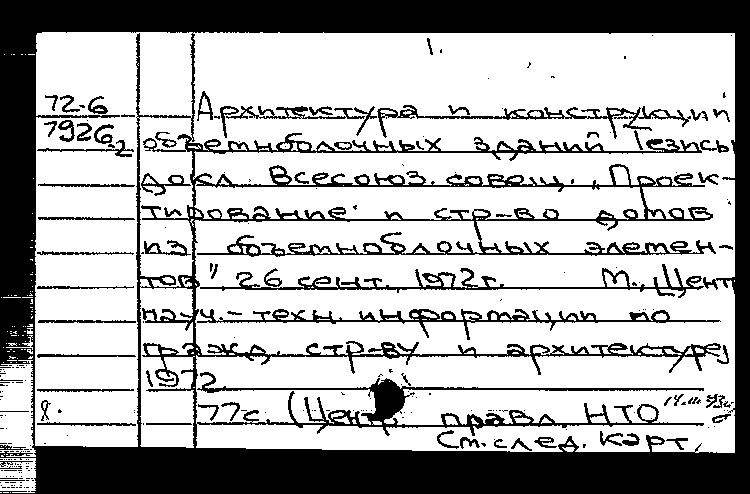 1.
72-6 Архитектура и конструкций
7926₂ объемноблочных зданий Тезисы
докл. Всесоюз. совещ. „Проек-
тирование и стр-во домов
из объемноблочных элемен-
тов", 26 сент., 1972г. М., Центр
науч.-техн. информации по
гражд. стр-ву и архитектуре,
1972.
8. 77с. (Центр. правл. НТО
См. след. карт.